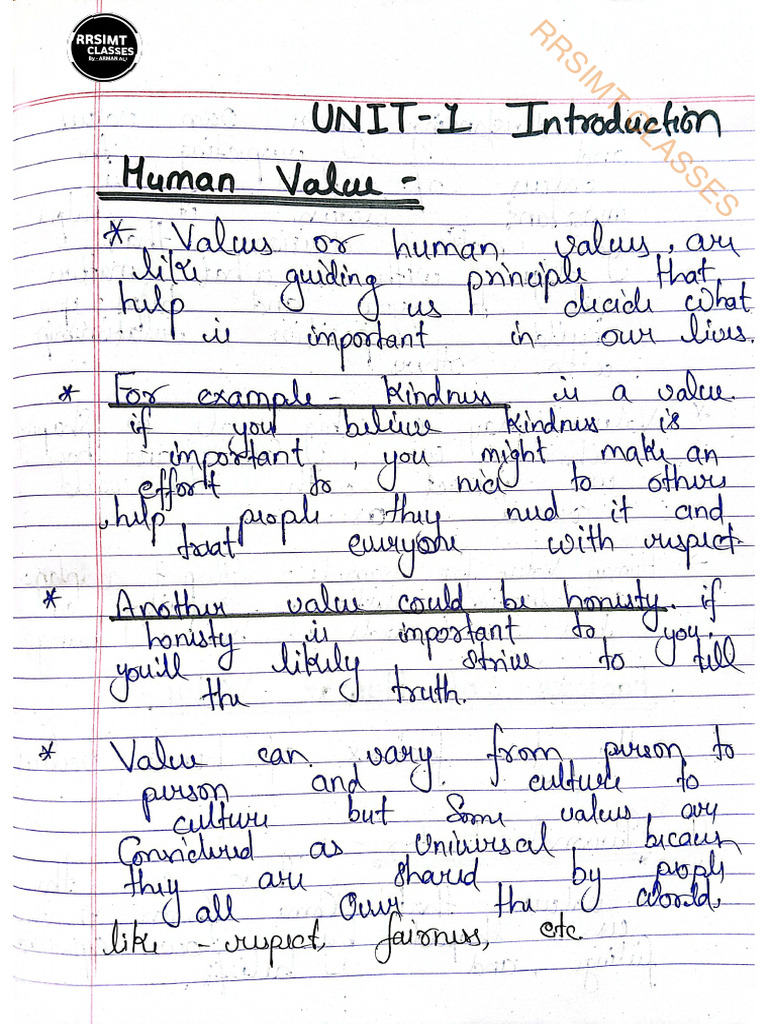 RRSIMT
CLASSES
By:- ARMAN ALI
RRSIMT CLASSES
UNIT-1 Introduction
Human Value -
* Values or human values, are
like guiding principle that
help us decide what
is important in our lives.
* For example - Kindness is a value.
if you believe kindness is
important, you might make an
effort to nice to others
help people they need it and
treat everyone with respect
* Another value could be honisty. if
honisty is important to you.
you'll likely strive to tell
the truth.
* Value can vary from person to
person and culture to
culture but some values are
Considered as universal because
they are shared by people
all over the world,
like - respect, fairness, etc